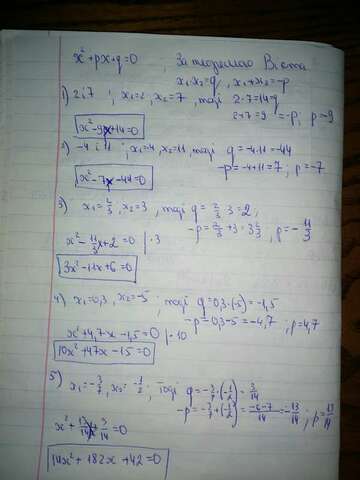 x²+px+q=0 ; За теоремою Вієта
x₁·x₂=q, x₁+x₂=-p
1) 2 і 7 ; x₁=2, x₂=7, тоді 2·7=14=q
2+7=9 =-p, p=-9
x²-9x+14=0
2) -4 і 11 ; x₁=-4, x₂=11, тоді q=-4·11=-44
-p=-4+11=7 ; p=-7
x²-7x-44=0
3) x₁=2/3, x₂=3, тоді q=2/3·3=2;
-p=2/3+3=3 2/3, p=-11/3
x²-11/3x+2=0 |·3
3x²-11x+6=0
4) x₁=0,3, x₂=-5 ; тоді q=0,3·(-5)=-1,5
-p=0,3-5=-4,7 ; p=4,7
x²+4,7x-1,5=0 |·10
10x²+47x-15=0
5) x₁=-3/7, x₂=-1/2, тоді q=-3/7·(-1/2)=3/14
-p=-3/7+(-1/2)=(-6-7)/14=-13/14; p=13/14
x²+13/14x+3/14=0
14x²+182x+42=0